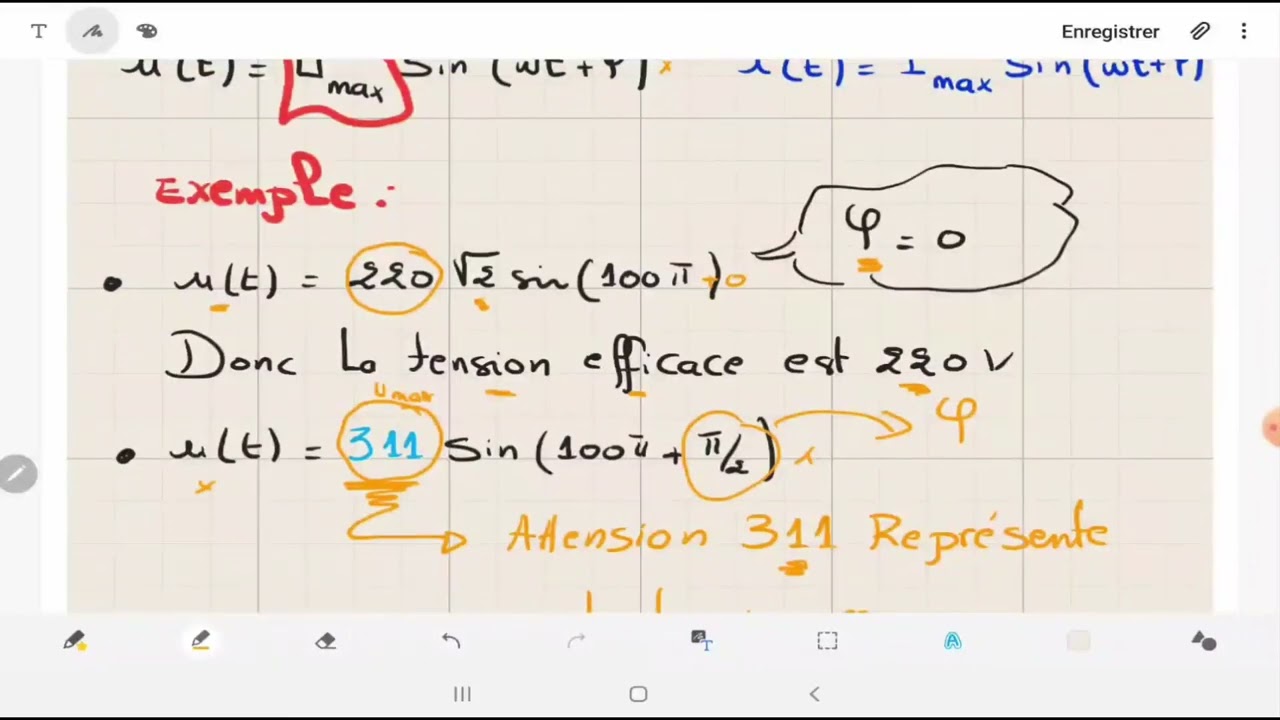 T Enregistrer
u(t) = U max sin (wt + φ) x i(t) = I max sin(wt+φ)
Exemple :
φ = 0
• u(t) = 220 √2 sin (100 π) + 0
Donc La tension efficace est 220 V
Umax
• u(t) = 311 sin (100π + π/2) φ
x
Attension 311 Représente
T
A